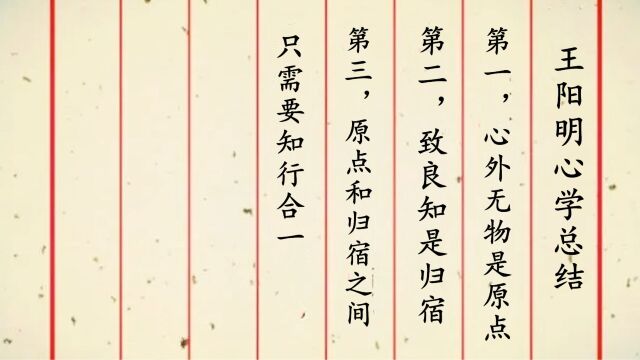 王阳明心学总结
第一，心外无物是原点
第二，致良知是归宿
第三，原点和归宿之间
只需要知行合一